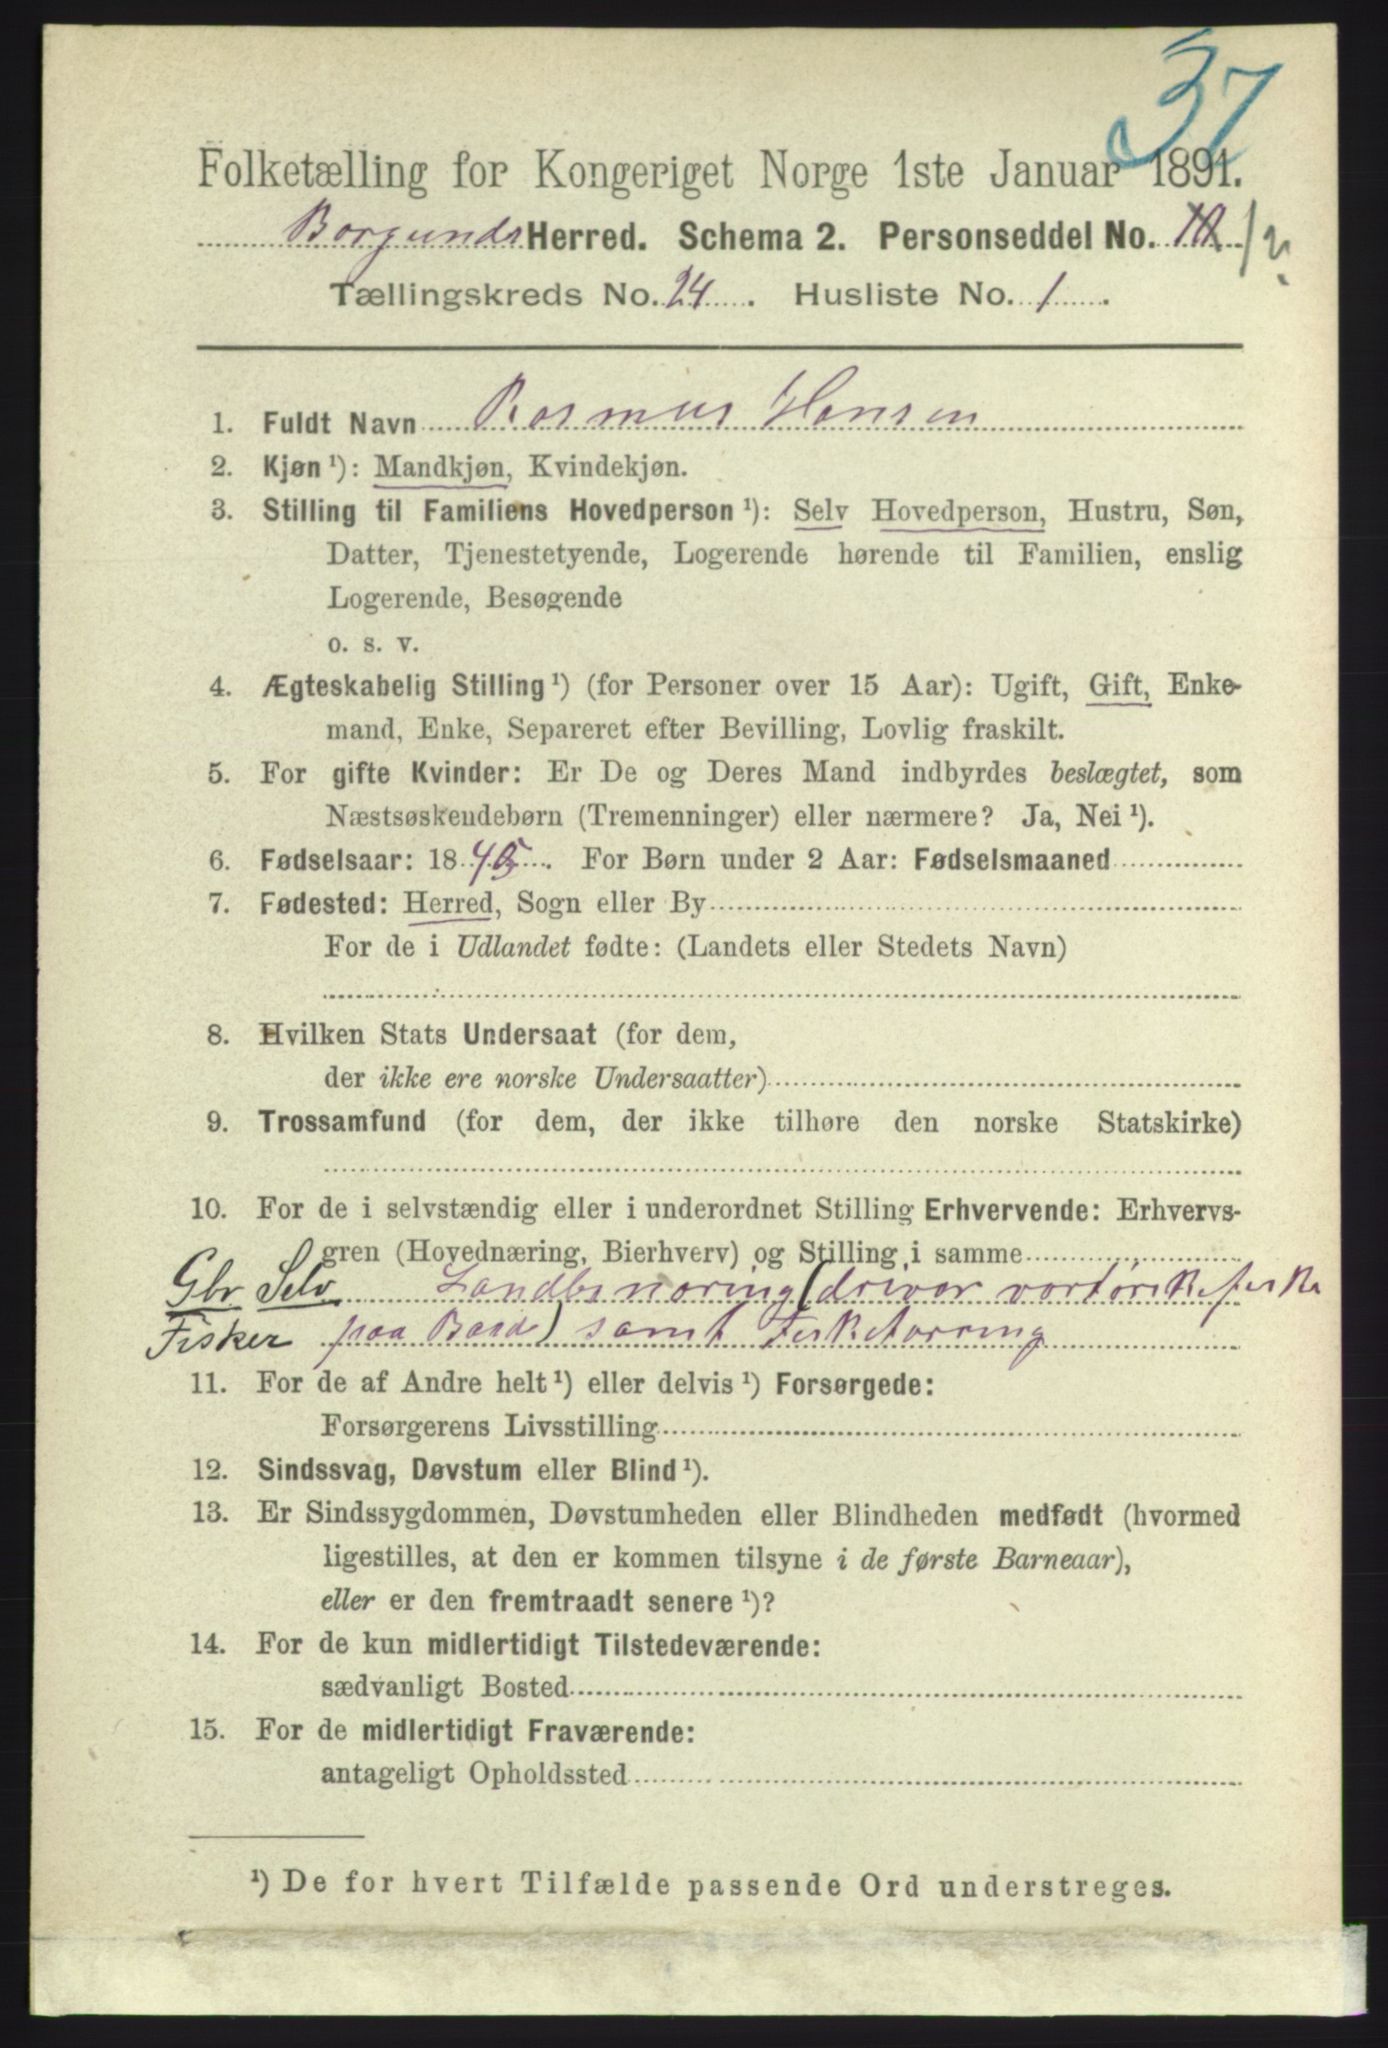 37
Folketælling for Kongeriget Norge 1ste Januar 1891.
Borgunds Herred. Schema 2. Personseddel No. 12
Tællingskreds No. 24. Husliste No. 1.
1. Fuldt Navn Rasmus Hansen
2. Kjøn ¹): Mandkjøn, Kvindekjøn.
3. Stilling til Familiens Hovedperson ¹): Selv Hovedperson, Hustru, Søn,
Datter, Tjenestetyende, Logerende hørende til Familien, enslig
Logerende, Besøgende
o. s. v.
4. Ægteskabelig Stilling ¹) (for Personer over 15 Aar): Ugift, Gift, Enke-
mand, Enke, Separeret efter Bevilling, Lovlig fraskilt.
5. For gifte Kvinder: Er De og Deres Mand indbyrdes beslægtet, som
Næstsøskendebørn (Tremenninger) eller nærmere? Ja, Nei ¹).
6. Fødselsaar: 1845. For Børn under 2 Aar: Fødselsmaaned
7. Fødested: Herred, Sogn eller By
For de i Udlandet fødte: (Landets eller Stedets Navn)
8. Hvilken Stats Undersaat (for dem,
der ikke ere norske Undersaatter)
9. Trossamfund (for dem, der ikke tilhøre den norske Statskirke)
10. For de i selvstændig eller i underordnet Stilling Erhvervende: Erhvervs-
gren (Hovednæring, Bierhverv) og Stilling i samme
Gbr Selv Landbsnæring (driver
Fisker paa Baad) samt
11. For de af Andre helt ¹) eller delvis ¹) Forsørgede:
Forsørgerens Livsstilling
12. Sindssvag, Døvstum eller Blind ¹).
13. Er Sindssygdommen, Døvstumheden eller Blindheden medfødt (hvormed
ligestilles, at den er kommen tilsyne i de første Barneaar),
eller er den fremtraadt senere ¹)?
14. For de kun midlertidigt Tilstedeværende:
sædvanligt Bosted
15. For de midlertidigt Fraværende:
antageligt Opholdssted
¹) De for hvert Tilfælde passende Ord understreges.